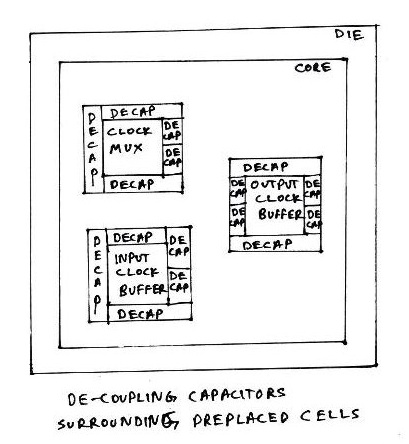 DIE
CORE
DECAP
DECAP
CLOCK
MUX
DE
CAP
DE
CAP
DECAP
DECAP
DE
CAP
DE
CAP
OUTPUT
CLOCK
BUFFER
DE
CAP
DE
CAP
DECAP
DECAP
DECAP
INPUT
CLOCK
BUFFER
DE
CAP
DE
CAP
DECAP
DE-COUPLING CAPACITORS
SURROUNDING PREPLACED CELLS